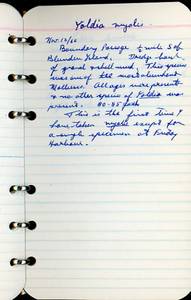 Yoldia myalis
Nov. 12/66
Boundary Passage ½ mile S of
Blunden Island. Dredge haul
of gravel & shell mud. This species
was one of the most abundant
Molluscs. All ages were present
& no other species of Yoldia was
present. 80-85 fath
This is the first time I
have taken myalis except for
a single specimen at Friday
Harbour.